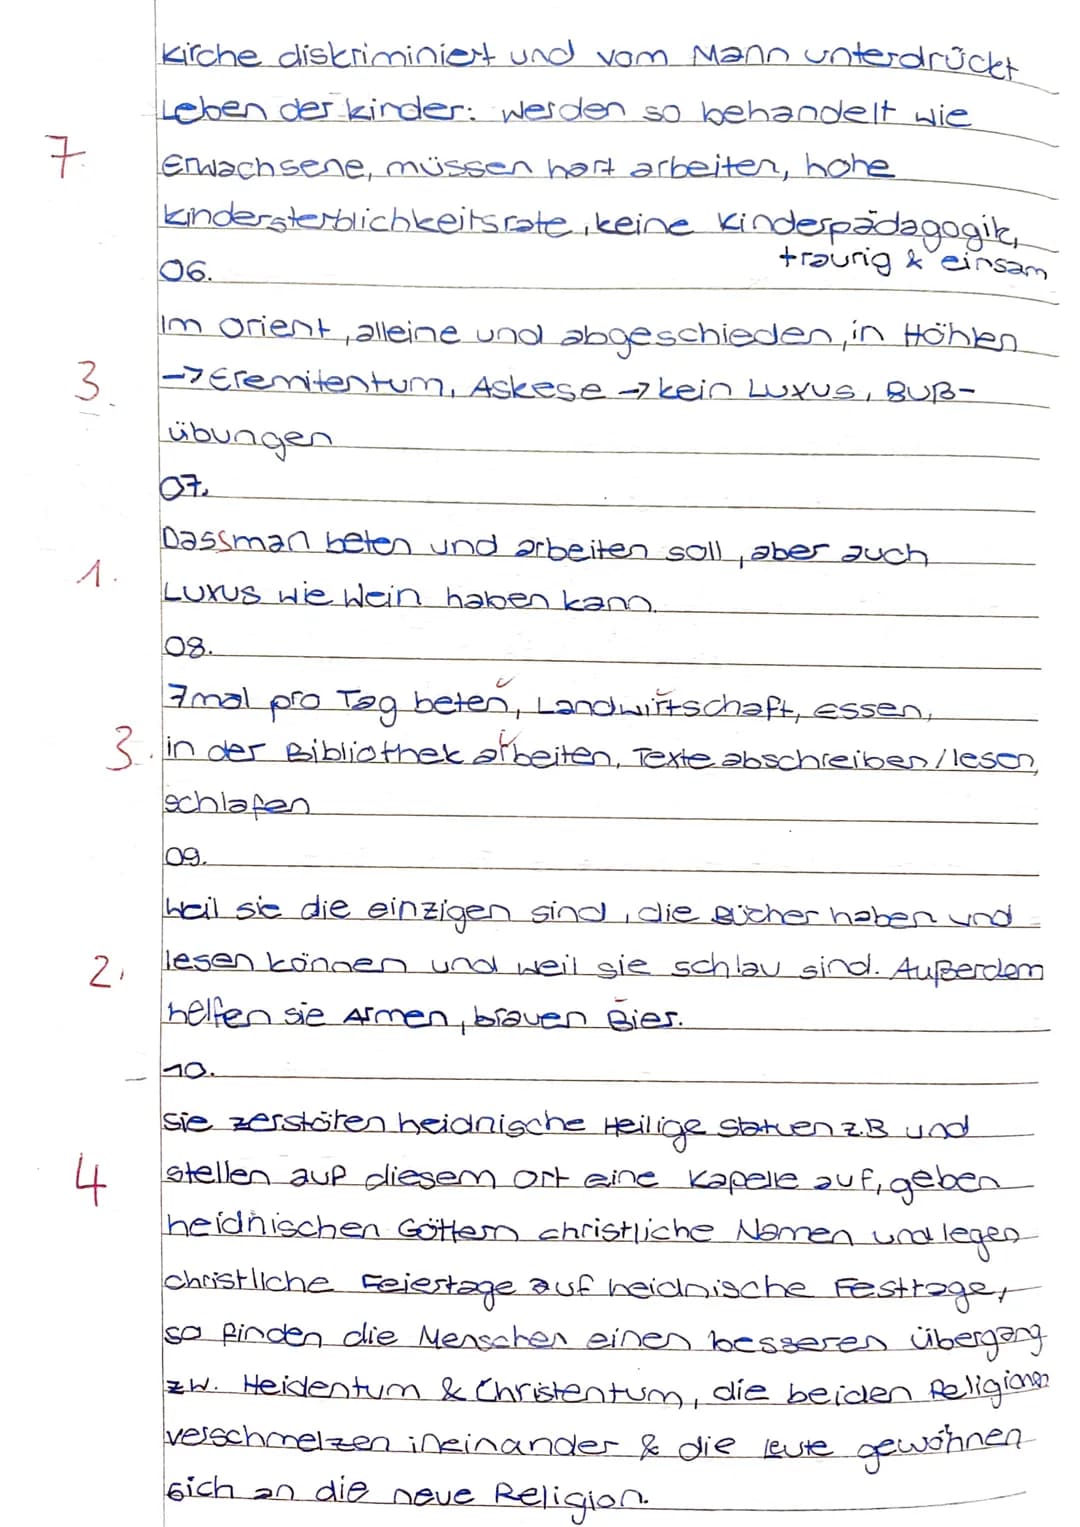 Kirche diskriminiert und vom Mann unterdrückt
Leben der Kinder: werden so behandelt wie
7. Erwachsene, müssen hart arbeiten, hohe
Kindersterblichkeitsrate, keine Kinderpädagogik,
traurig & einsam
06.
Im Orient, alleine und abgeschieden, in Höhlen
3. -> Eremitentum, Askese -> kein Luxus, Buß-
übungen
07.
Dassman beten und arbeiten soll, aber auch
1. Luxus wie Wein haben kann.
08.
7mal pro Tag beten, Landwirtschaft, essen,
3. in der Bibliothek arbeiten, Texte abschreiben/lesen,
schlafen
09.
Weil sie die einzigen sind, die Bücher haben und
2. lesen können und weil sie schlau sind. Außerdem
helfen sie Armen, brauen Bier.
10.
Sie zerstören heidnische Heilige Statuen z.B und
4 stellen auf diesem Ort eine Kapelle auf, geben
heidnischen Göttern christliche Namen und legen
christliche Feiertage auf heidnische Festtage,
so finden die Menschen einen besseren Übergang
zw. Heidentum & Christentum, die beiden Religionen
verschmelzen ineinander & die Leute gewöhnen
sich an die neue Religion.